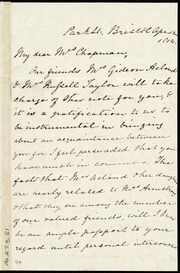 Park St. Bristol April
My dear Mrs Chapman,
Our friends Mrs Gideon Acland
& Mrs Russell Taylor will take
charge of this note for you; &
it is a gratification to us to
be instrumental in bringing
about an acquaintance between
you for I feel persuaded that you
have much in common. The
fact that Mrs Acland & her
are nearly related to Mrs Armstrong
& that they are among the number
of our valued friends, will I know
be an ample passport to your
regard until personal intercourse